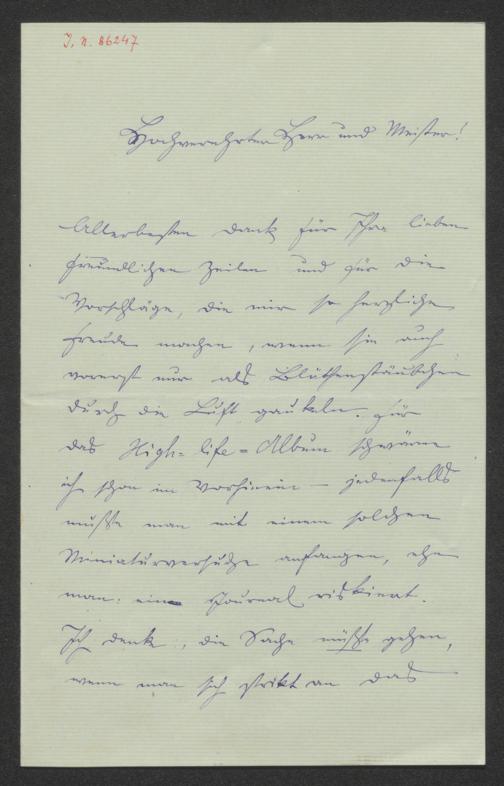 J. N. 86247
Hochverehrter Herr und Meister!
Allerbesten Dank für Ihre lieben
freundlichen Zeilen und für die
Vorschläge, die mir so herzliche
Freude machen, wenn sie auch
vorerst nur als Blüthenstäubchen
durch die Luft gaukeln. Für
das High-life-Album schwärme
ich schon im Vorhinein – jedenfalls
müßte man mit einem solchen
Miniaturversuche anfangen, ehe
man ein Journal riskirt.
Ich denke, die Sache müßte gehen,
wenn man sich strikt an das